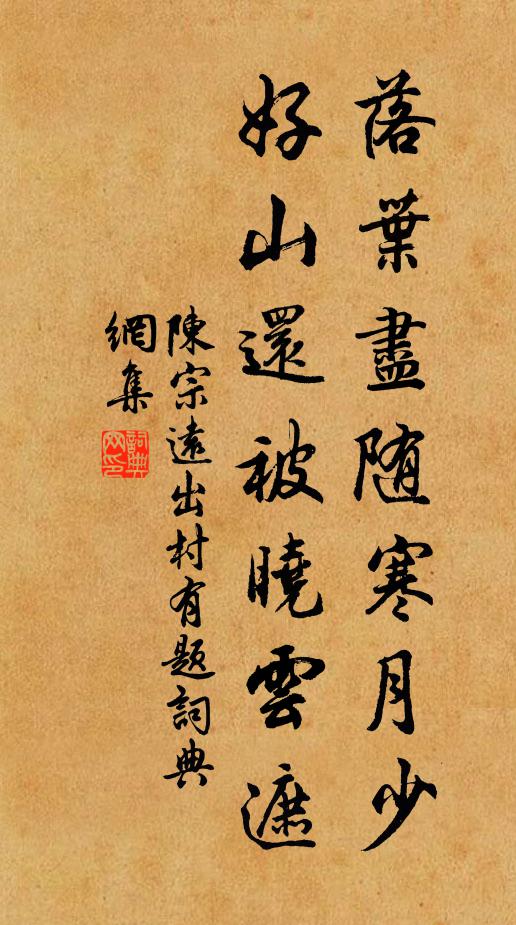 落葉盡随寒月少
好山還被曉雲遮
陳宗遠出村有題詞典
網集
詞典
网印